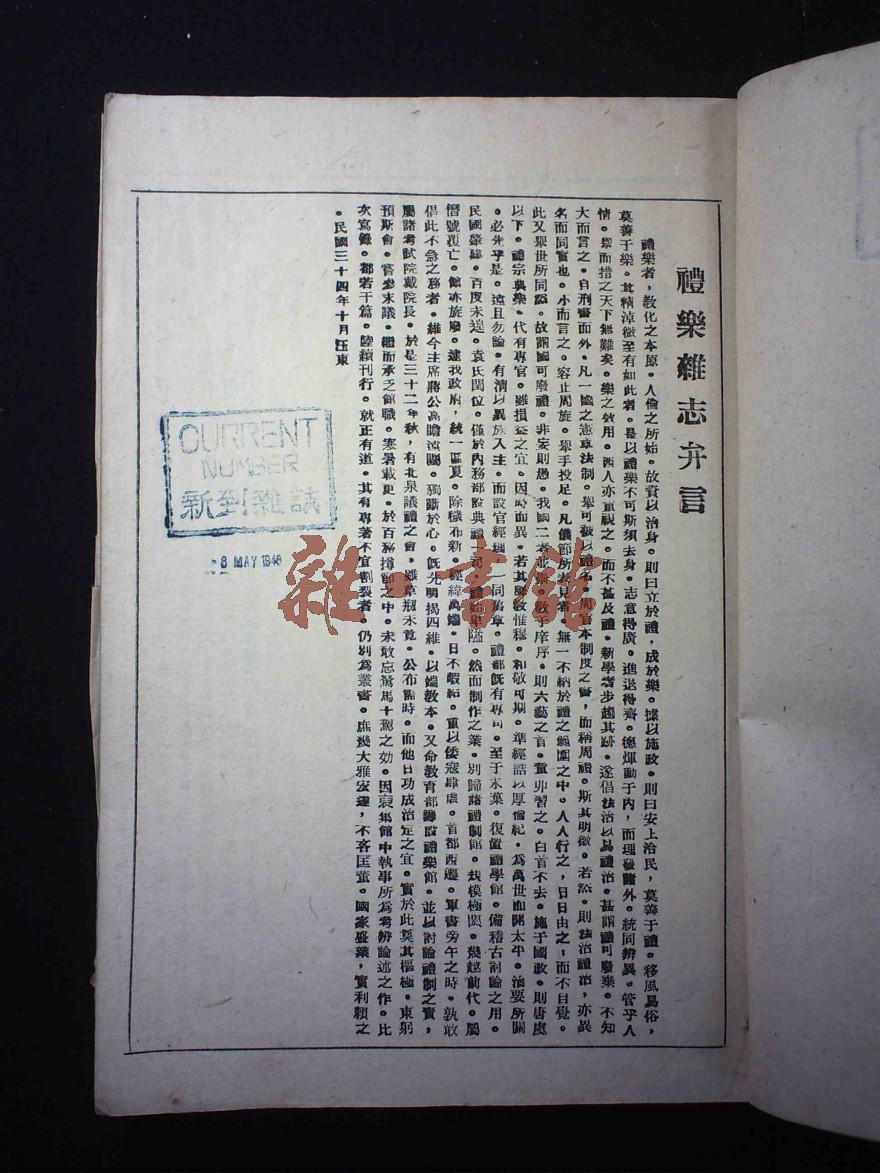 禮樂雜志弁言
禮樂者，教化之本原。人倫之所始。故資以治身。則曰立於禮，成於樂。據以施政。則曰安上治民，莫善于禮。移風易俗，
莫善于樂。其精淖微至有如此者。是以禮樂不可斯須去身。志意得廣。進退得齊。德煇動于內，而理發諸外。統同辨異。管乎人
情。舉而措之天下無難矣。樂之效用。西人亦重視之。而不甚及禮。新學者步趨其跡。遂倡法治以易禮治。甚謂禮可廢樂。不知
大而言之。自刑書而外。凡一國之憲章法制。舉可被以禮名。周官本制度之書，而稱周禮。斯其明徵。若然。則法治禮治，亦異
名而同實也。小而言之。容止周旋。舉手投足。凡儀節所表見者。無一不納於禮之範圍之中。人人行之，日日由之，而不自覺。
此又舉世所同然。故謂國可廢禮。非妄則愚。我國二者並重。敎于庠序。則六藝之首。童丱習之。白首不去。施于國政。則唐虞
以下。禮宗典樂。代有專官。雖損益之宜。因時而異。若其風敎惟穆。和敬可期。準經誥以厚倫紀。為萬世而開太平。治要所關
。必先乎是。遠且勿論。有清以異族入主。而設官經埋。一同舊章。禮部既有專司。至于末葉。復置禮學館。備稽古討論之用。
民國肇建。百度未遑。袁氏閏位。僅於內務部設典禮一司。禮始卑隘。然而制作之業。別歸諸禮制館。規模極閎。幾越前代。屬
僭號覆亡。館亦旋廢。逮我政府，統一區夏。除穢布新。經緯萬端。日不暇給。重以倭寇肆虐。首都西遷。軍書旁午之時。孰敢
倡此不急之務者。維今主席蔣公高瞻遠矚。獨斷於心。既先明揭四維。以端教本。又命教育部籌設禮樂館。並以討論禮制之責，
屬諸考試院戴院長。於是三十二年秋，有北泉議禮之會。雖草剏未竟。公布需時。而他日功成治定之宜。實於此奠其樞極。東躬
預斯會。嘗參末議。繼而承乏館職。寒暑載更。於百務撙節之中。未敢忘駑馬十駕之効。因裒集館中執事所為考辨論述之作。比
次寫錄。都若干篇。陸續刊行。就正有道。其有專著不宜割裂者。仍別為叢書。庶幾大雅宏達，不吝匡董。國家盛業，實利賴之
。民國三十四年十月汪東
CURRENT
NUMBER
新到雜誌
8 MAY 1946
雜·書館